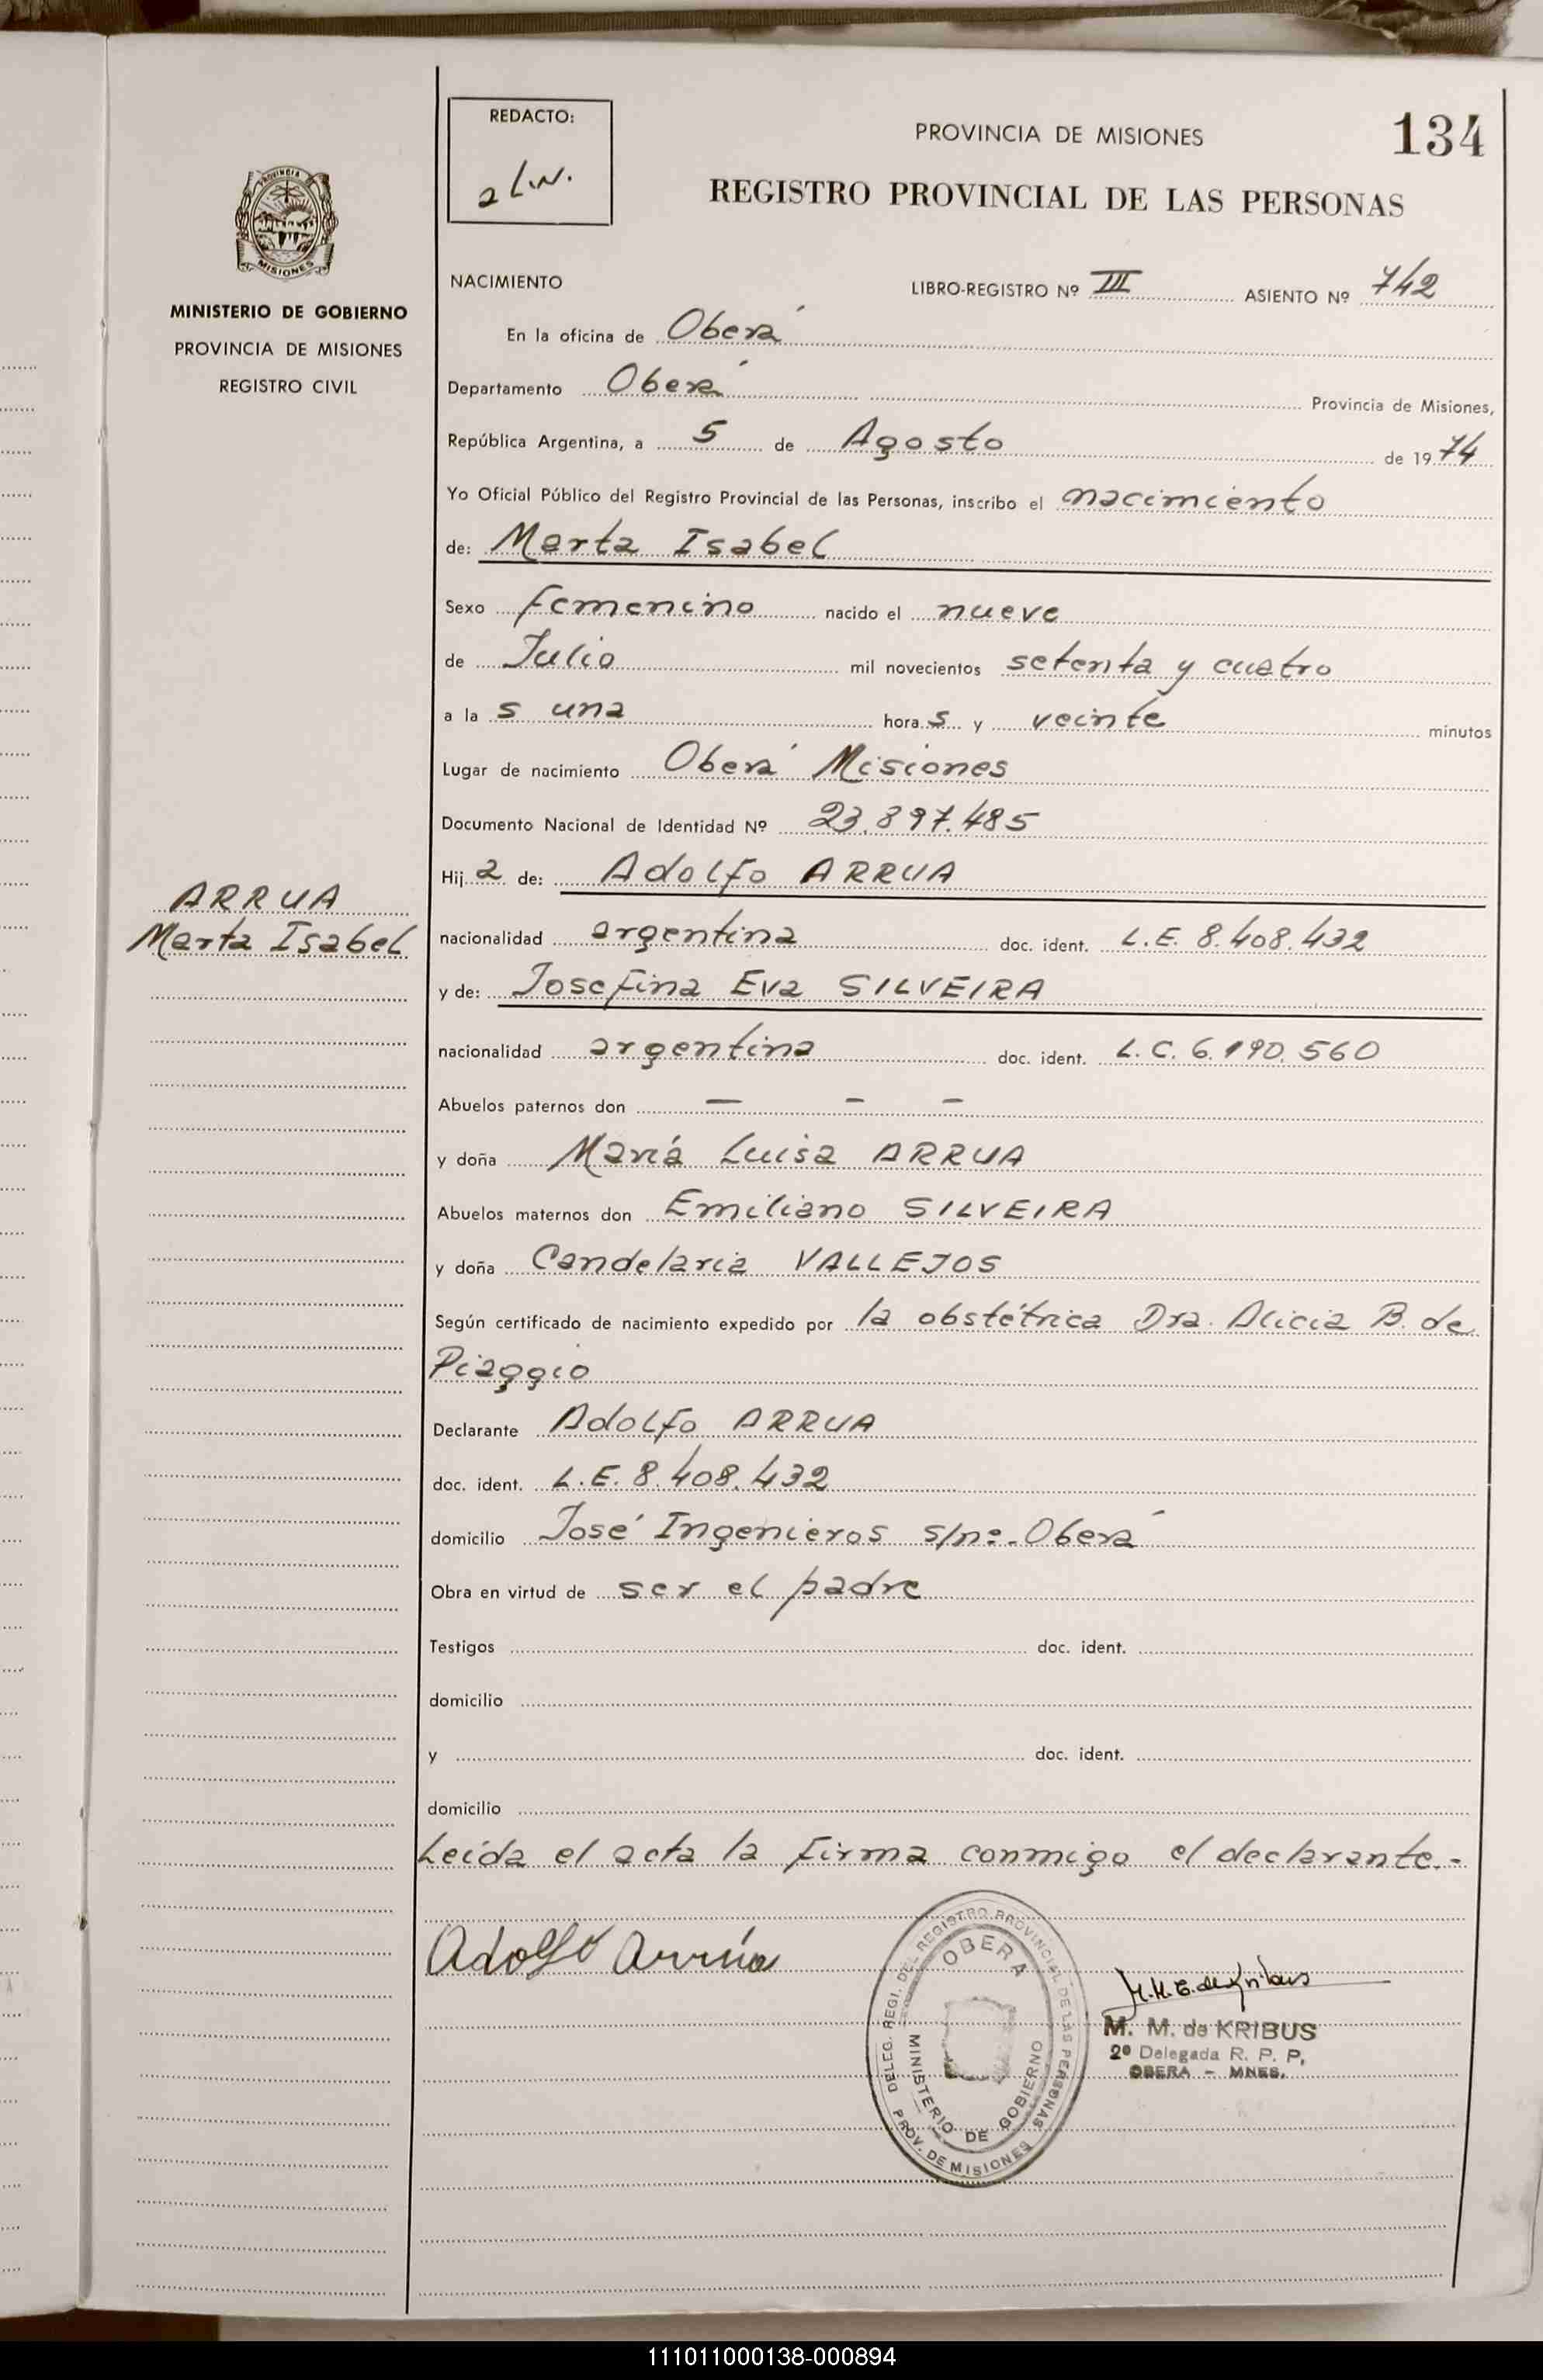 134
REDACTO:
PROVINCIA DE MISIONES
REGISTRO PROVINCIAL DE LAS PERSONAS
PROVINCIA
MISIONES
MINISTERIO DE GOBIERNO
PROVINCIA DE MISIONES
REGISTRO CIVIL
NACIMIENTO LIBRO-REGISTRO Nº III ASIENTO Nº 742
En la oficina de Oberá
Departamento Oberá Provincia de Misiones,
República Argentina, a 5 de Agosto de 1974
Yo Oficial Público del Registro Provincial de las Personas, inscribo el nacimiento
de: Marta Isabel
Sexo femenino nacido el nueve
de Julio mil novecientos setenta y cuatro
a la s una hora s y veinte minutos
Lugar de nacimiento Oberá Misiones
Documento Nacional de Identidad Nº 23.897.485
Hij a de: Adolfo ARRUA
ARRUA
Marta Isabel
nacionalidad argentina doc. ident. L.E. 8.408.432
y de: Josefina Eva SILVEIRA
nacionalidad argentina doc. ident. L.C. 6.190.560
Abuelos paternos don — - -
y doña María Luisa ARRUA
Abuelos maternos don Emiliano SILVEIRA
y doña Candelaria VALLEJOS
Según certificado de nacimiento expedido por la obstétrica Dra. Alicia B. de
Piaggio
Declarante Adolfo ARRUA
doc. ident. L.E. 8.408.432
domicilio José Ingenieros s/nº.- Oberá
Obra en virtud de ser el padre
Testigos doc. ident.
domicilio
y doc. ident.
domicilio
Leída el acta la firma conmigo el declarante.-
Adolfo Arrúa
DELEG. REGI. DEL REGISTRO PROVINCIAL DE LAS PERSONAS
OBERA
MINISTERIO DE GOBIERNO
PROV. DE MISIONES
M. M. de KRIBUS
2º Delegada R. P. P.
OBERA - MNES.
111011000138-000894